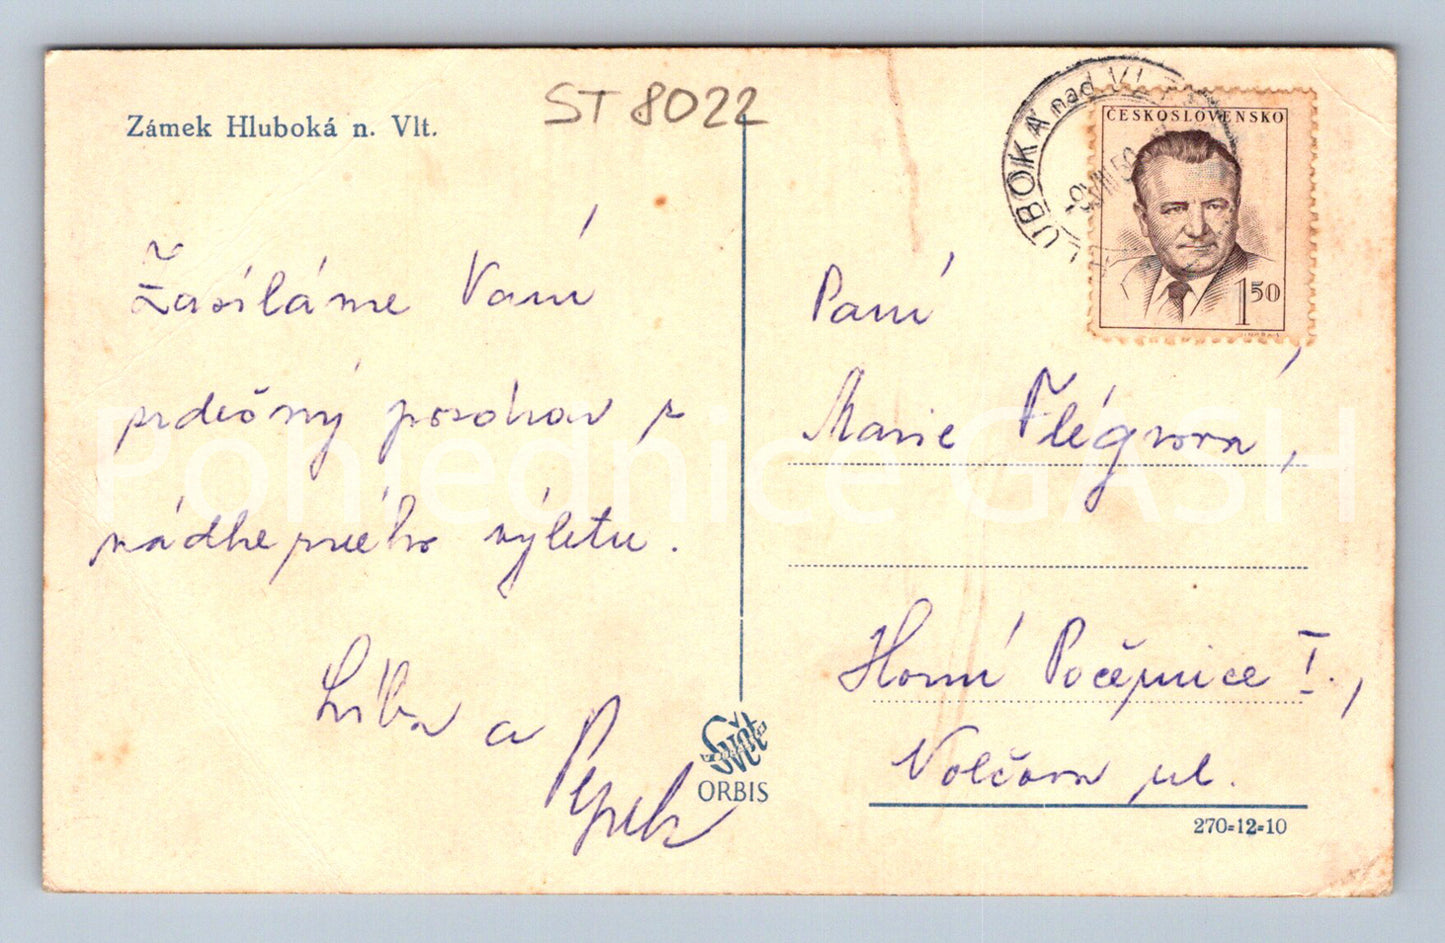 Zámek Hluboká n. Vlt.
ST 8022
Zasíláme Vám
srdečný pozdrav z
nádherného výletu.
Líba a
Pepek
HLUBOKÁ nad VLT
-9.VIII.50
ČESKOSLOVENSKO
1 50
Paní
Marie Flégrová,
Horní Počernice I.,
Volčova ul.
Svět
ORBIS
270-12-10
Pohlednice GASH